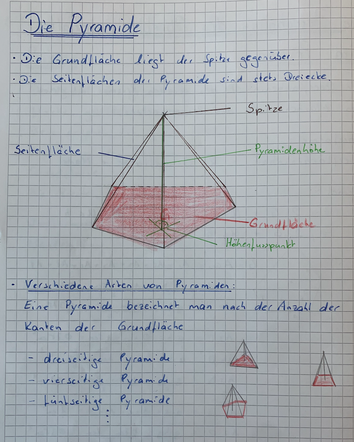 Die Pyramide
· Die Grundfläche liegt der Spitze gegenüber.
· Die Seitenflächen der Pyramide sind stets Dreiecke.
Spitze
Seitenfläche
Pyramidenhöhe
Grundfläche
Höhenfusspunkt
- Verschiedene Arten von Pyramiden:
Eine Pyramide bezeichnet man nach der Anzahl der
Kanten der Grundfläche
- dreiseitige Pyramide
- vierseitige Pyramide
- fünfseitige Pyramide